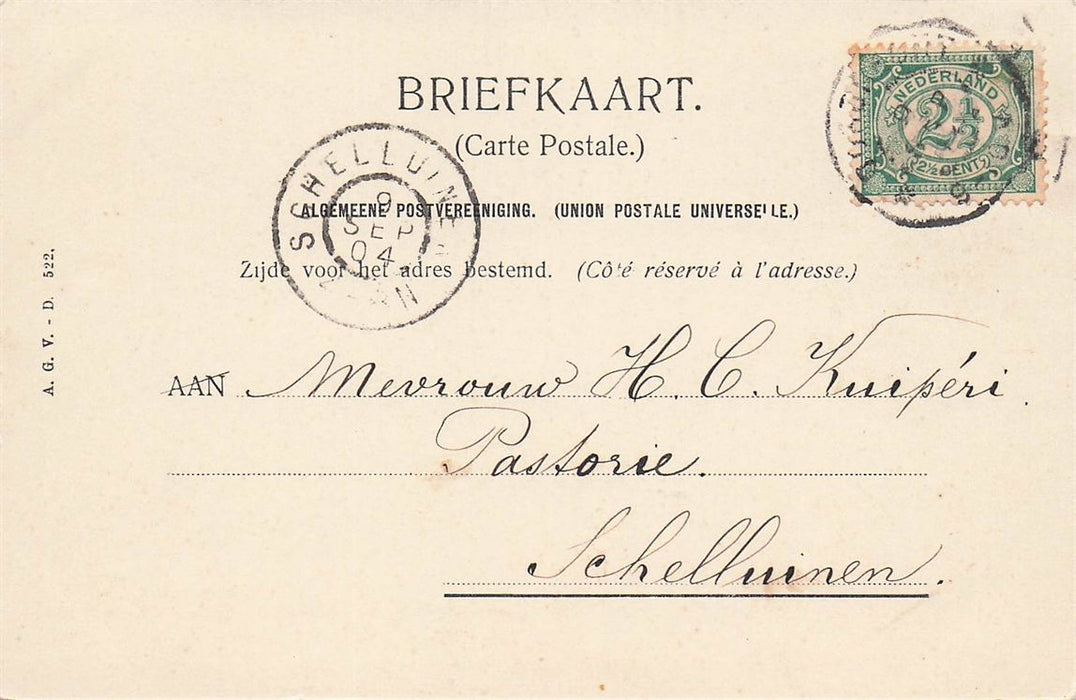 BRIEFKAART.
(Carte Postale.)
ALGEMEENE POSTVEREENIGING. (UNION POSTALE UNIVERSELLE.)
Zijde voor het adres bestemd. (Côté réservé à l'adresse.)
NEDERLAND
2½
2½ CENT
SCHELLUINEN
9
SEP
04
A. G. V. - D. 522.
AAN Mevrouw H. C. Kuipéri
Pastorie.
Schelluinen.